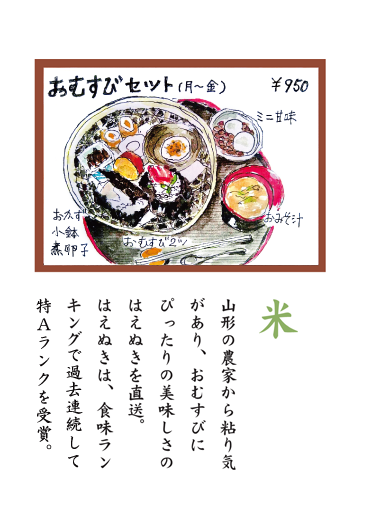 おむすびセット(月〜金) ¥950
ミニ甘味
おかず
小鉢
煮卵子
おむすび2ツ
おみそ汁
米
山形の農家から粘り気
があり、おむすびに
ぴったりの美味しさの
はえぬきを直送。
はえぬきは、食味ラン
キングで過去連続して
特Aランクを受賞。